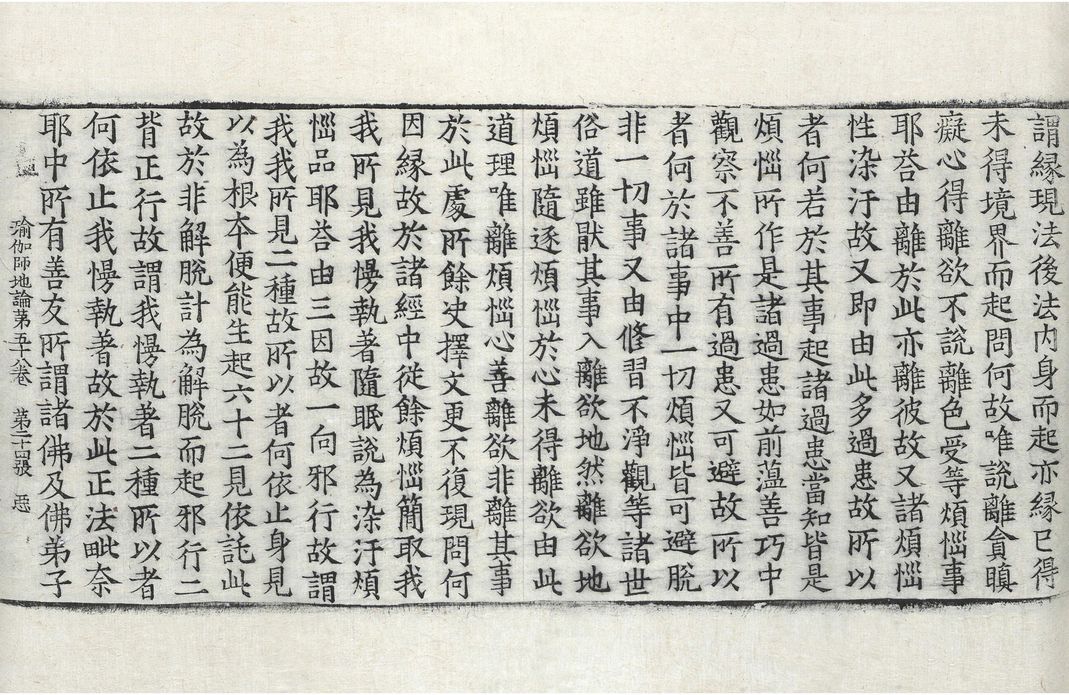 謂縁現法後法内身而起亦縁已得
未得境界而起問何故唯說離貪瞋
癡心得離欲不說離色受等煩惱事
耶荅由離於此亦離彼故又諸煩惱
性染汙故又即由此多過患故所以
者何若於其事起諸過患當知皆是
煩惱所作是諸過患如前薀善巧中
觀察不善所有過患又可避故所以
者何於諸事中一切煩惱皆可避脫
非一切事又由修習不淨觀等諸世
俗道雖猒其事入離欲地然離欲地
煩惱隨逐煩惱於心未得離欲由此
道理唯離煩惱心善離欲非離其事
於此處所餘决擇文更不復現問何
因縁故於諸經中從餘煩惱簡取我
我所見我慢執著隨眠說為染汙煩
惱品耶荅由三因故一向邪行故謂
我我所見二種故所以者何依止身見
以為根本便能生起六十二見依託此
故於非解脫計為解脫而起邪行二
背正行故謂我慢執著二種所以者
何依止我慢執著故於此正法毗奈
耶中所有善友所謂諸佛及佛弟子
瑜伽師地論第五十八卷 第二十四張 恶